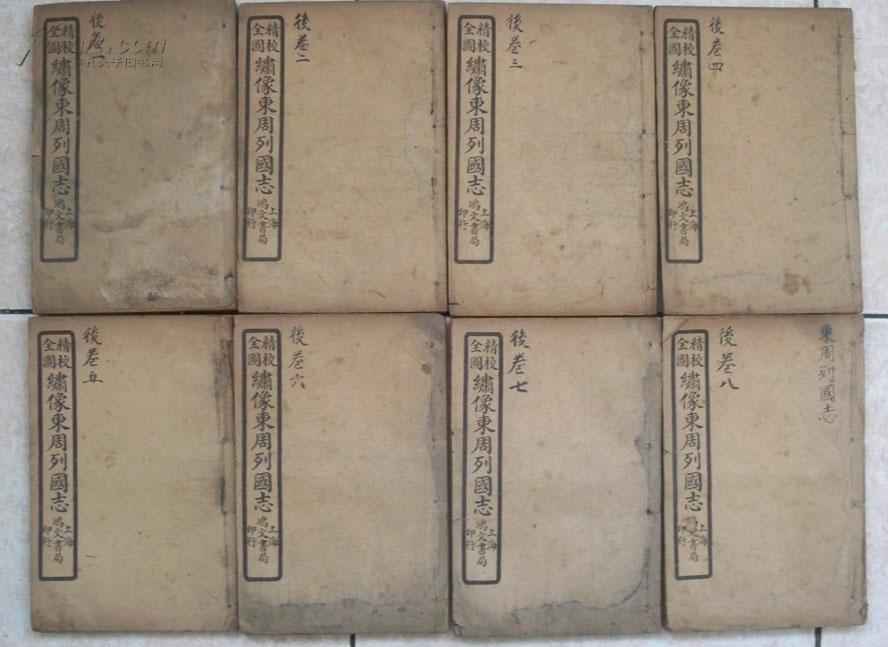 後卷一
精校
全圖
繡像東周列國志
上海
鴻文書局
印行
後卷二
精校
全圖
繡像東周列國志
上海
鴻文書局
印行
後卷三
精校
全圖
繡像東周列國志
上海
鴻文書局
印行
後卷四
精校
全圖
繡像東周列國志
上海
鴻文書局
印行
後卷五
精校
全圖
繡像東周列國志
上海
鴻文書局
印行
後卷六
精校
全圖
繡像東周列國志
上海
鴻文書局
印行
後卷七
精校
全圖
繡像東周列國志
上海
鴻文書局
印行
東周列國志
後卷八
精校
全圖
繡像東周列國志
上海
鴻文書局
印行